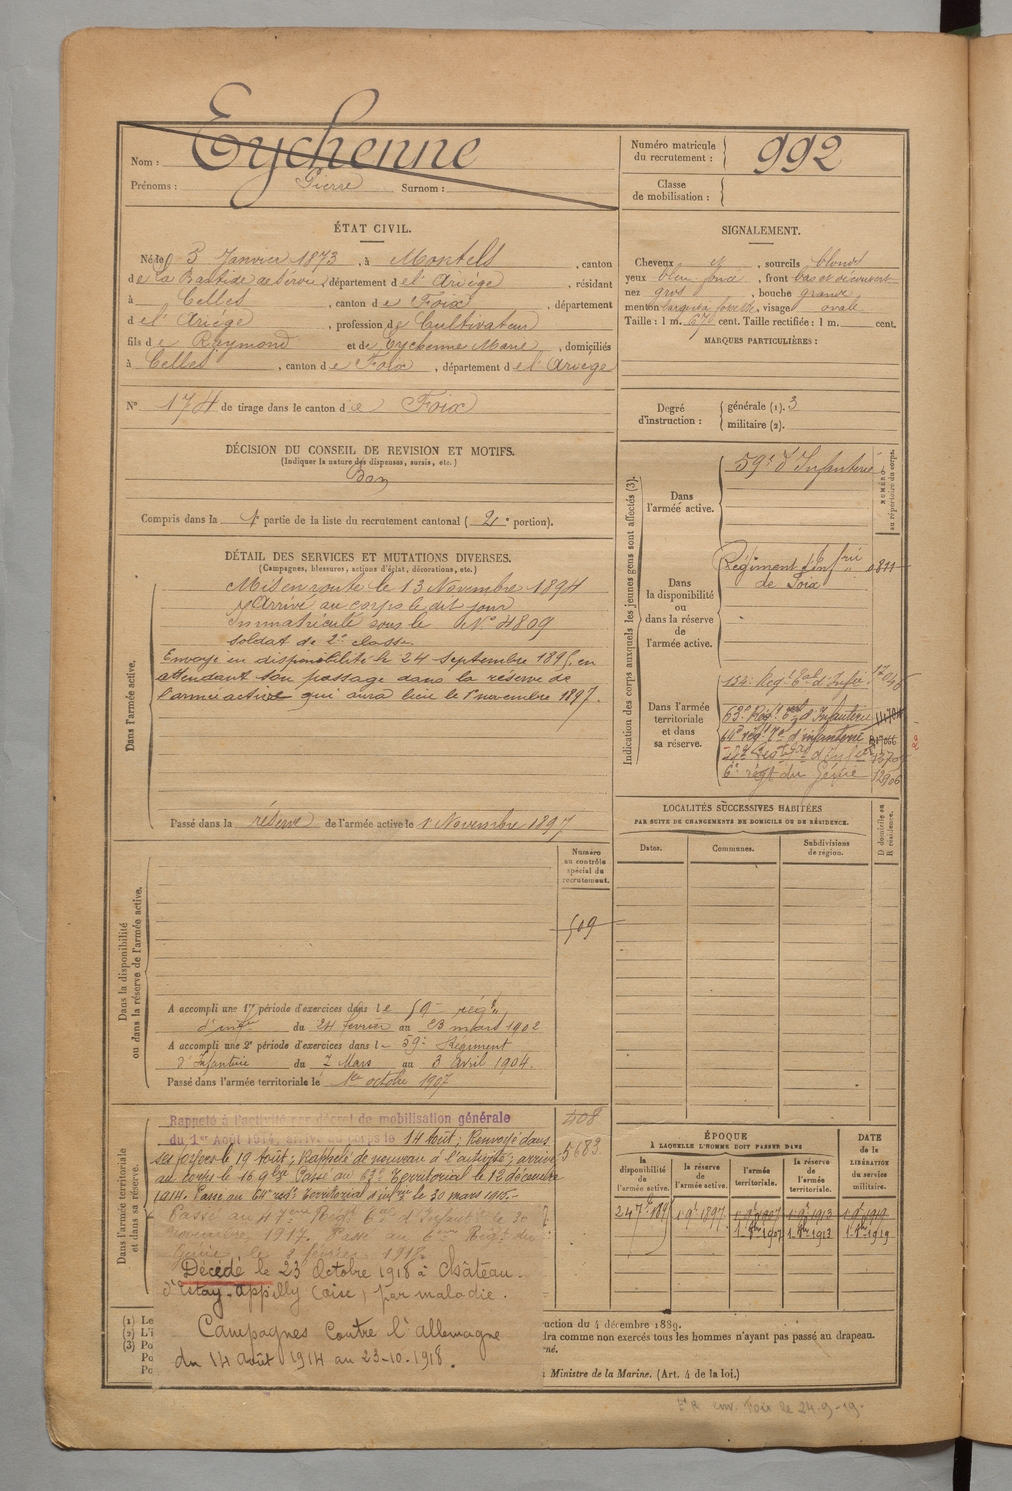 Nom : Eychenne
Prénoms : Pierre Surnom :
Numéro matricule du recrutement : 992
Classe de mobilisation :
ÉTAT CIVIL.
Né le 3 Janvier 1873, à Montels, canton
de La Bastide de Sérou, département de l'Ariège, résidant
à Celles, canton de Foix, département
de l'Ariège, profession de Cultivateur
fils de Raymond et de Eychenne Marie, domiciliés
à Celles, canton de Foix, département de l'Ariège
N° 174 de tirage dans le canton de Foix
SIGNALEMENT.
Cheveux et, sourcils blonds
yeux bleu foncé, front bas et découvert
nez gros, bouche grande
menton large à fossette, visage ovale
Taille : 1 m. 670 cent. Taille rectifiée : 1 m. cent.
MARQUES PARTICULIÈRES :
Degré d'instruction : générale (1). 3
militaire (2).
DÉCISION DU CONSEIL DE REVISION ET MOTIFS.
(Indiquer la nature des dispenses, sursis, etc.)
Bon
Compris dans la 1e partie de la liste du recrutement cantonal (2e portion).
DÉTAIL DES SERVICES ET MUTATIONS DIVERSES.
(Campagnes, blessures, actions d'éclat, décorations, etc.)
Dans l'armée active.
Mis en route le 13 Novembre 1894
Arrivé au corps le dit jour
Immatriculé sous le N° 4809
soldat de 2e classe
Envoyé en disponibilité le 24 septembre 1895, en
attendant son passage dans la réserve de
l'armée active qui aura lieu le 1er novembre 1897.
Passé dans la réserve de l'armée active le 1 Novembre 1897
Indication des corps auxquels les jeunes gens sont affectés (3).
NUMÉRO au répertoire du corps.
Dans l'armée active.
59e d'Infanterie
Dans la disponibilité ou dans la réserve de l'armée active.
Régiment d'inf
de Foix
Dans l'armée territoriale et dans sa réserve.
132e Regt tal d'Infie
63e Régt d'Infanterie
64e régt d'infanterie
6e régt du Génie 12906
LOCALITÉS SUCCESSIVES HABITÉES
PAR SUITE DE CHANGEMENTS DE DOMICILE OU DE RÉSIDENCE.
Dates. Communes. Subdivisions de région. D domicile ou R résidence.
Dans la disponibilité ou dans la réserve de l'armée active.
Numéro au contrôle spécial du recrutement.
509
A accompli une 1re période d'exercices dans le 59e régt
d'infie du 24 février au 23 mars 1902
A accompli une 2e période d'exercices dans le 59e Régiment
d'Infanterie du 7 Mars au 3 avril 1904.
Passé dans l'armée territoriale le 1er octobre 1907
Dans l'armée territoriale et dans sa réserve.
408
5683
Rappelé à l'activité par décret de mobilisation générale
du 1er Août 1914, arrivé au corps le 14 Août; Renvoyé dans
ses foyers le 19 Août; Rappelé de nouveau à l'activité; arrivé
au corps le 16 9bre Passé au 63e Territorial le 12 décembre
1914. Passé au 64e regt territorial d'infrie le 30 mars 1915.
Passé au 47ème Regt tal d'Infant. le 30
novembre 1917. Passé au 6ème Régt du
Génie le 8 février 1918.
Décédé le 23 Octobre 1918 à Château
d'Estay-Appilly (Oise) par maladie.
Campagnes contre l'allemagne
du 14 août 1914 au 23-10-1918.
ÉPOQUE
À LAQUELLE L'HOMME DOIT PASSER DANS
la disponibilité de l'armée active. la réserve de l'armée active. l'armée territoriale. la réserve de l'armée territoriale.
DATE de la LIBÉRATION du service militaire.
24 7bre 1895 1 9bre 1897 1 9bre 1907 1 9bre 1913 1 9bre 1919
1 8bre 1907 1 8bre 1913 1 8bre 1919
(1) Le
(2) L'i
(3) Po
Po
Po
uction du 4 décembre 1889.
dra comme non exercés tous les hommes n'ayant pas passé au drapeau.
né.
Ministre de la Marine. (Art. 4 de la loi.)
Foix le 24-9-19